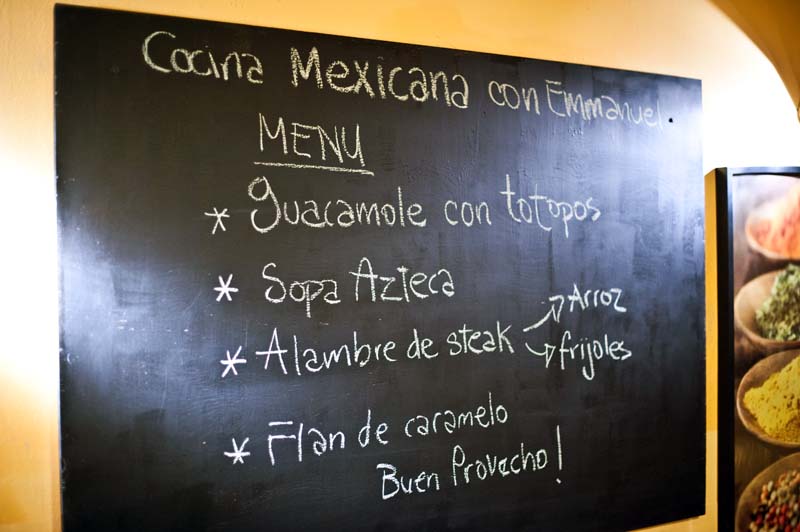 Cocina Mexicana con Emmanuel.
MENU
* guacamole con totopos
* Sopa Azteca
* Alambre de steak
Arroz
frijoles
* Flan de caramelo
Buen Provecho!